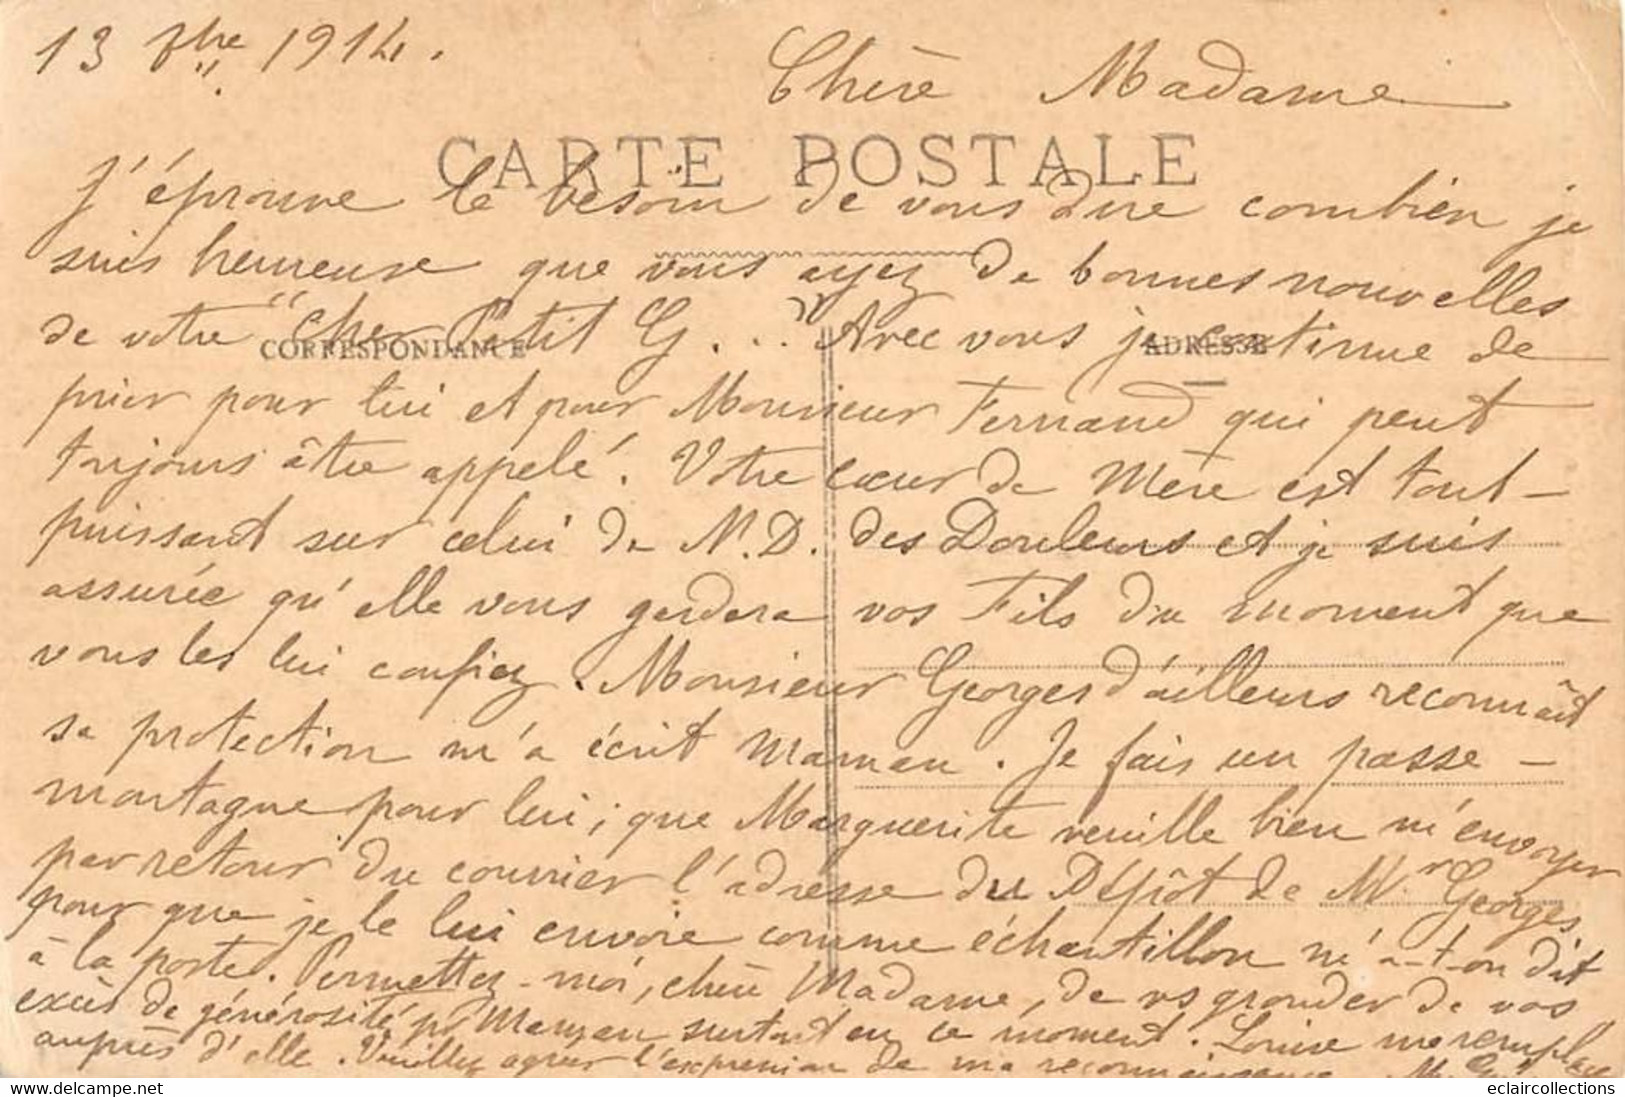 13 bre 1914.
Chère Madame
CARTE POSTALE
J'éprouve le besoin de vous dire combien je
suis heureuse que vous ayez de bonnes nouvelles
de votre "cher Petit G..." Avec vous je continue de
CORRESPONDANCE
ADRESSE
prier pour lui et pour Monsieur Fernand qui peut
toujours être appelé. Votre cœur de Mère est tout-
puissant sur celui de N.D. des Douleurs et je suis
assurée qu'elle vous gardera vos Fils du moment que
vous les lui confiez. Monsieur Georges d'ailleurs reconnaît
sa protection m'a écrit Maman. Je fais un passe-
montagne pour lui; que Marguerite veuille bien m'envoyer
par retour du courrier l'adresse du Dépôt de Mr Georges
pour que je le lui envoie comme échantillon m'a-t-on dit
à la poste. Permettez-moi, chère Madame, de vs gronder de vos
excès de générosité pr Maman surtout en ce moment. Louise me remplace
auprès d'elle. Veuillez agréer l'expression de ma reconnaissance. M.
eclaircollections